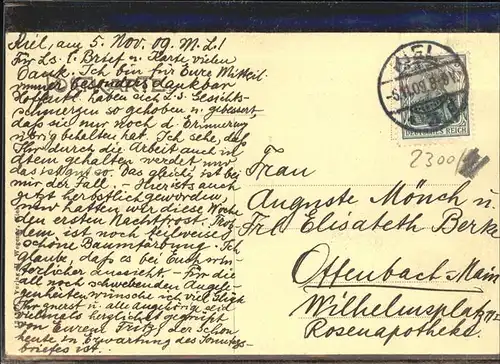 Kiel, am 5. Nov. 09. M. L!
Für Ls. l. Brief u. Karte vielen
Dank. Ich bin für Eure Mitteil.
immer besonders dankbar
Hoffentl. haben sich L.s Gesichts-
schmerzen so gehoben u. gebessert,
daß sie nur noch d. Erinnerung
übrig behalten hat. Ich sehe, daß
Ihr durch die Arbeit auch in
Atem gehalten werdet
das ist so. Das gleich ist bei
mir der Fall. - Hier ists auch
jetzt herbstlich geworden,
wir hatten diese Woche
den ersten Nachtfrost. Trotz-
dem ist noch teilweise
schöne Baumfärbung. Ich
glaube, daß es bei Euch win-
terlicher aussieht. - Für die
all noch schwebenden Angele-
genheiten wünsche ich viel Glück
Ihr u. alle Angehörig. seid
vielmals herzlichst gegrüßt
von Eurem Fritz der schon
heute in Erwartung des Sonntags-
briefes ist.
KIEL
5.11.09. 8-9
DEUTSCHES REICH
2300
Frau
Auguste Mönch u.
Frl Elisabeth Berka
Offenbach a Main
Wilhelmsplatz
Rosenapotheke.